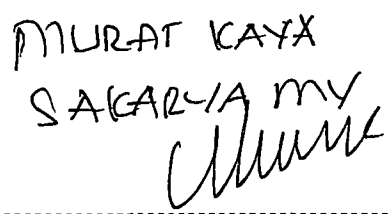 MURAT KAYA
SAKARYA MY